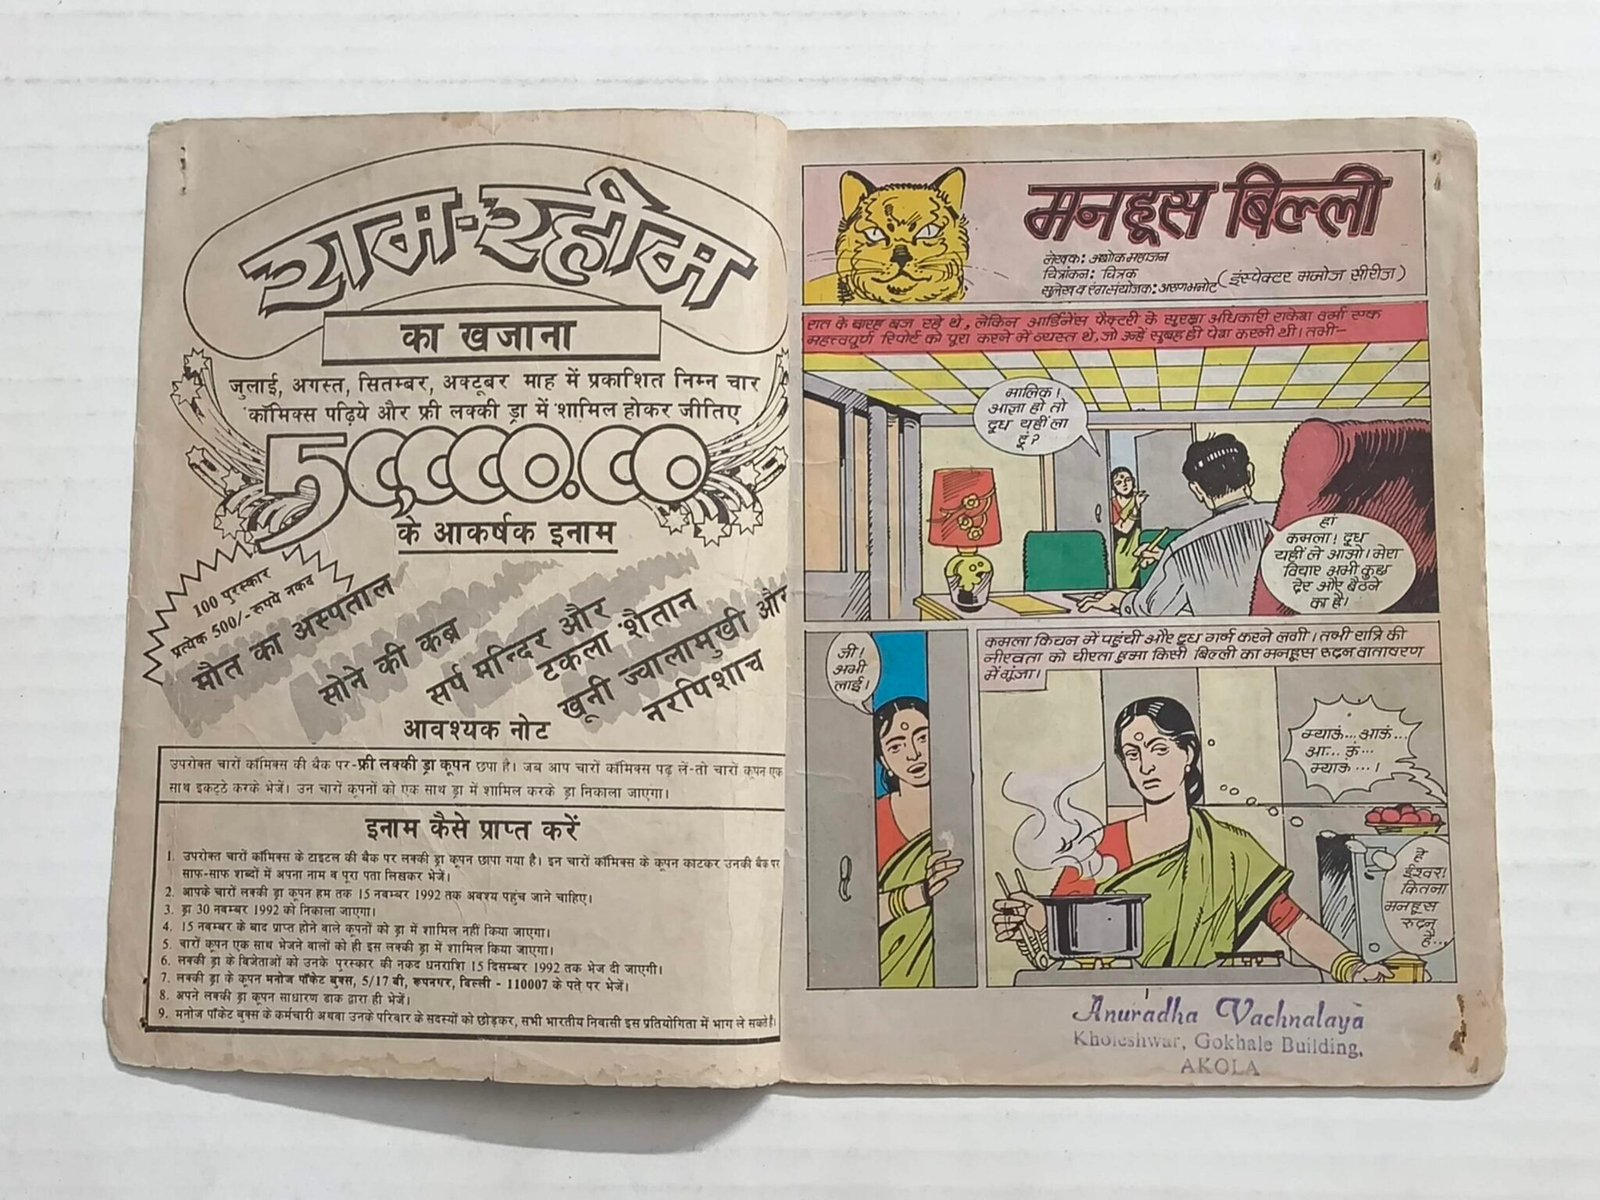 राम-रहीम
का खजाना
जुलाई, अगस्त, सितम्बर, अक्टूबर माह में प्रकाशित निम्न चार
कॉमिक्स पढ़िये और फ्री लक्की ड्रा में शामिल होकर जीतिए
50,000.00
के आकर्षक इनाम
100 पुरस्कार
प्रत्येक 500/- रुपये नकद
मौत का अस्पताल
सोने की कब्र
सर्प मन्दिर और
टकला शैतान
खूनी ज्वालामुखी और
नरपिशाच
आवश्यक नोट
उपरोक्त चारों कॉमिक्स की बैक पर-फ्री लक्की ड्रा कूपन छपा है। जब आप चारों कॉमिक्स पढ़ लें-तो चारों कूपन एक
साथ इकट्ठे करके भेजें। उन चारों कूपनों को एक साथ ड्रा में शामिल करके ड्रा निकाला जाएगा।
इनाम कैसे प्राप्त करें
1. उपरोक्त चारों कॉमिक्स के टाइटल की बैक पर लक्की ड्रा कूपन छापा गया है। इन चारों कॉमिक्स के कूपन काटकर उनकी बैक पर
साफ-साफ शब्दों में अपना नाम व पूरा पता लिखकर भेजें।
2. आपके चारों लक्की ड्रा कूपन हम तक 15 नवम्बर 1992 तक अवश्य पहुंच जाने चाहिए।
3. ड्रा 30 नवम्बर 1992 को निकाला जाएगा।
4. 15 नवम्बर के बाद प्राप्त होने वाले कूपनों को ड्रा में शामिल नहीं किया जाएगा।
5. चारों कूपन एक साथ भेजने वालों को ही इस लक्की ड्रा में शामिल किया जाएगा।
6. लक्की ड्रा के विजेताओं को उनके पुरस्कार की नकद धनराशि 15 दिसम्बर 1992 तक भेज दी जाएगी।
7. लक्की ड्रा के कूपन मनोज पॉकेट बुक्स, 5/17 बी, रूपनगर, दिल्ली - 110007 के पते पर भेजें।
8. अपने लक्की ड्रा कूपन साधारण डाक द्वारा ही भेजें।
9. मनोज पॉकेट बुक्स के कर्मचारी अथवा उनके परिवार के सदस्यों को छोड़कर, सभी भारतीय निवासी इस प्रतियोगिता में भाग ले सकते हैं।
मनहूस बिल्ली
लेखक: अशोक महाजन
चित्रांकन: चित्रक
सुलेख व रंग संयोजक: अरुण भनोट
(इंस्पेक्टर मनोज सीरीज)
रात के बारह बज रहे थे, लेकिन आर्डिनेंस फैक्टरी के सुरक्षा अधिकारी राकेश वर्मा एक
महत्त्वपूर्ण रिपोर्ट को पूरा करने में व्यस्त थे, जो उन्हें सुबह ही पेश करनी थी। तभी-
मालिक!
आज्ञा हो तो
दूध यहीं ला
दूं?
हां
कमला! दूध
यहीं ले आओ। मेरा
विचार अभी कुछ
देर और बैठने
का है।
जी!
अभी
लाई।
कमला किचन में पहुंची और दूध गर्म करने लगी। तभी रात्रि की
नीरवता को चीरता हुआ किसी बिल्ली का मनहूस रुदन वातावरण
में गूंजा।
म्याऊं... आऊं...
आ... ऊं...
म्याऊं...।
हे
ईश्वर!
कितना
मनहूस
रुदन
है...
Anuradha Vachnalaya
Kholeshwar, Gokhale Building,
AKOLA